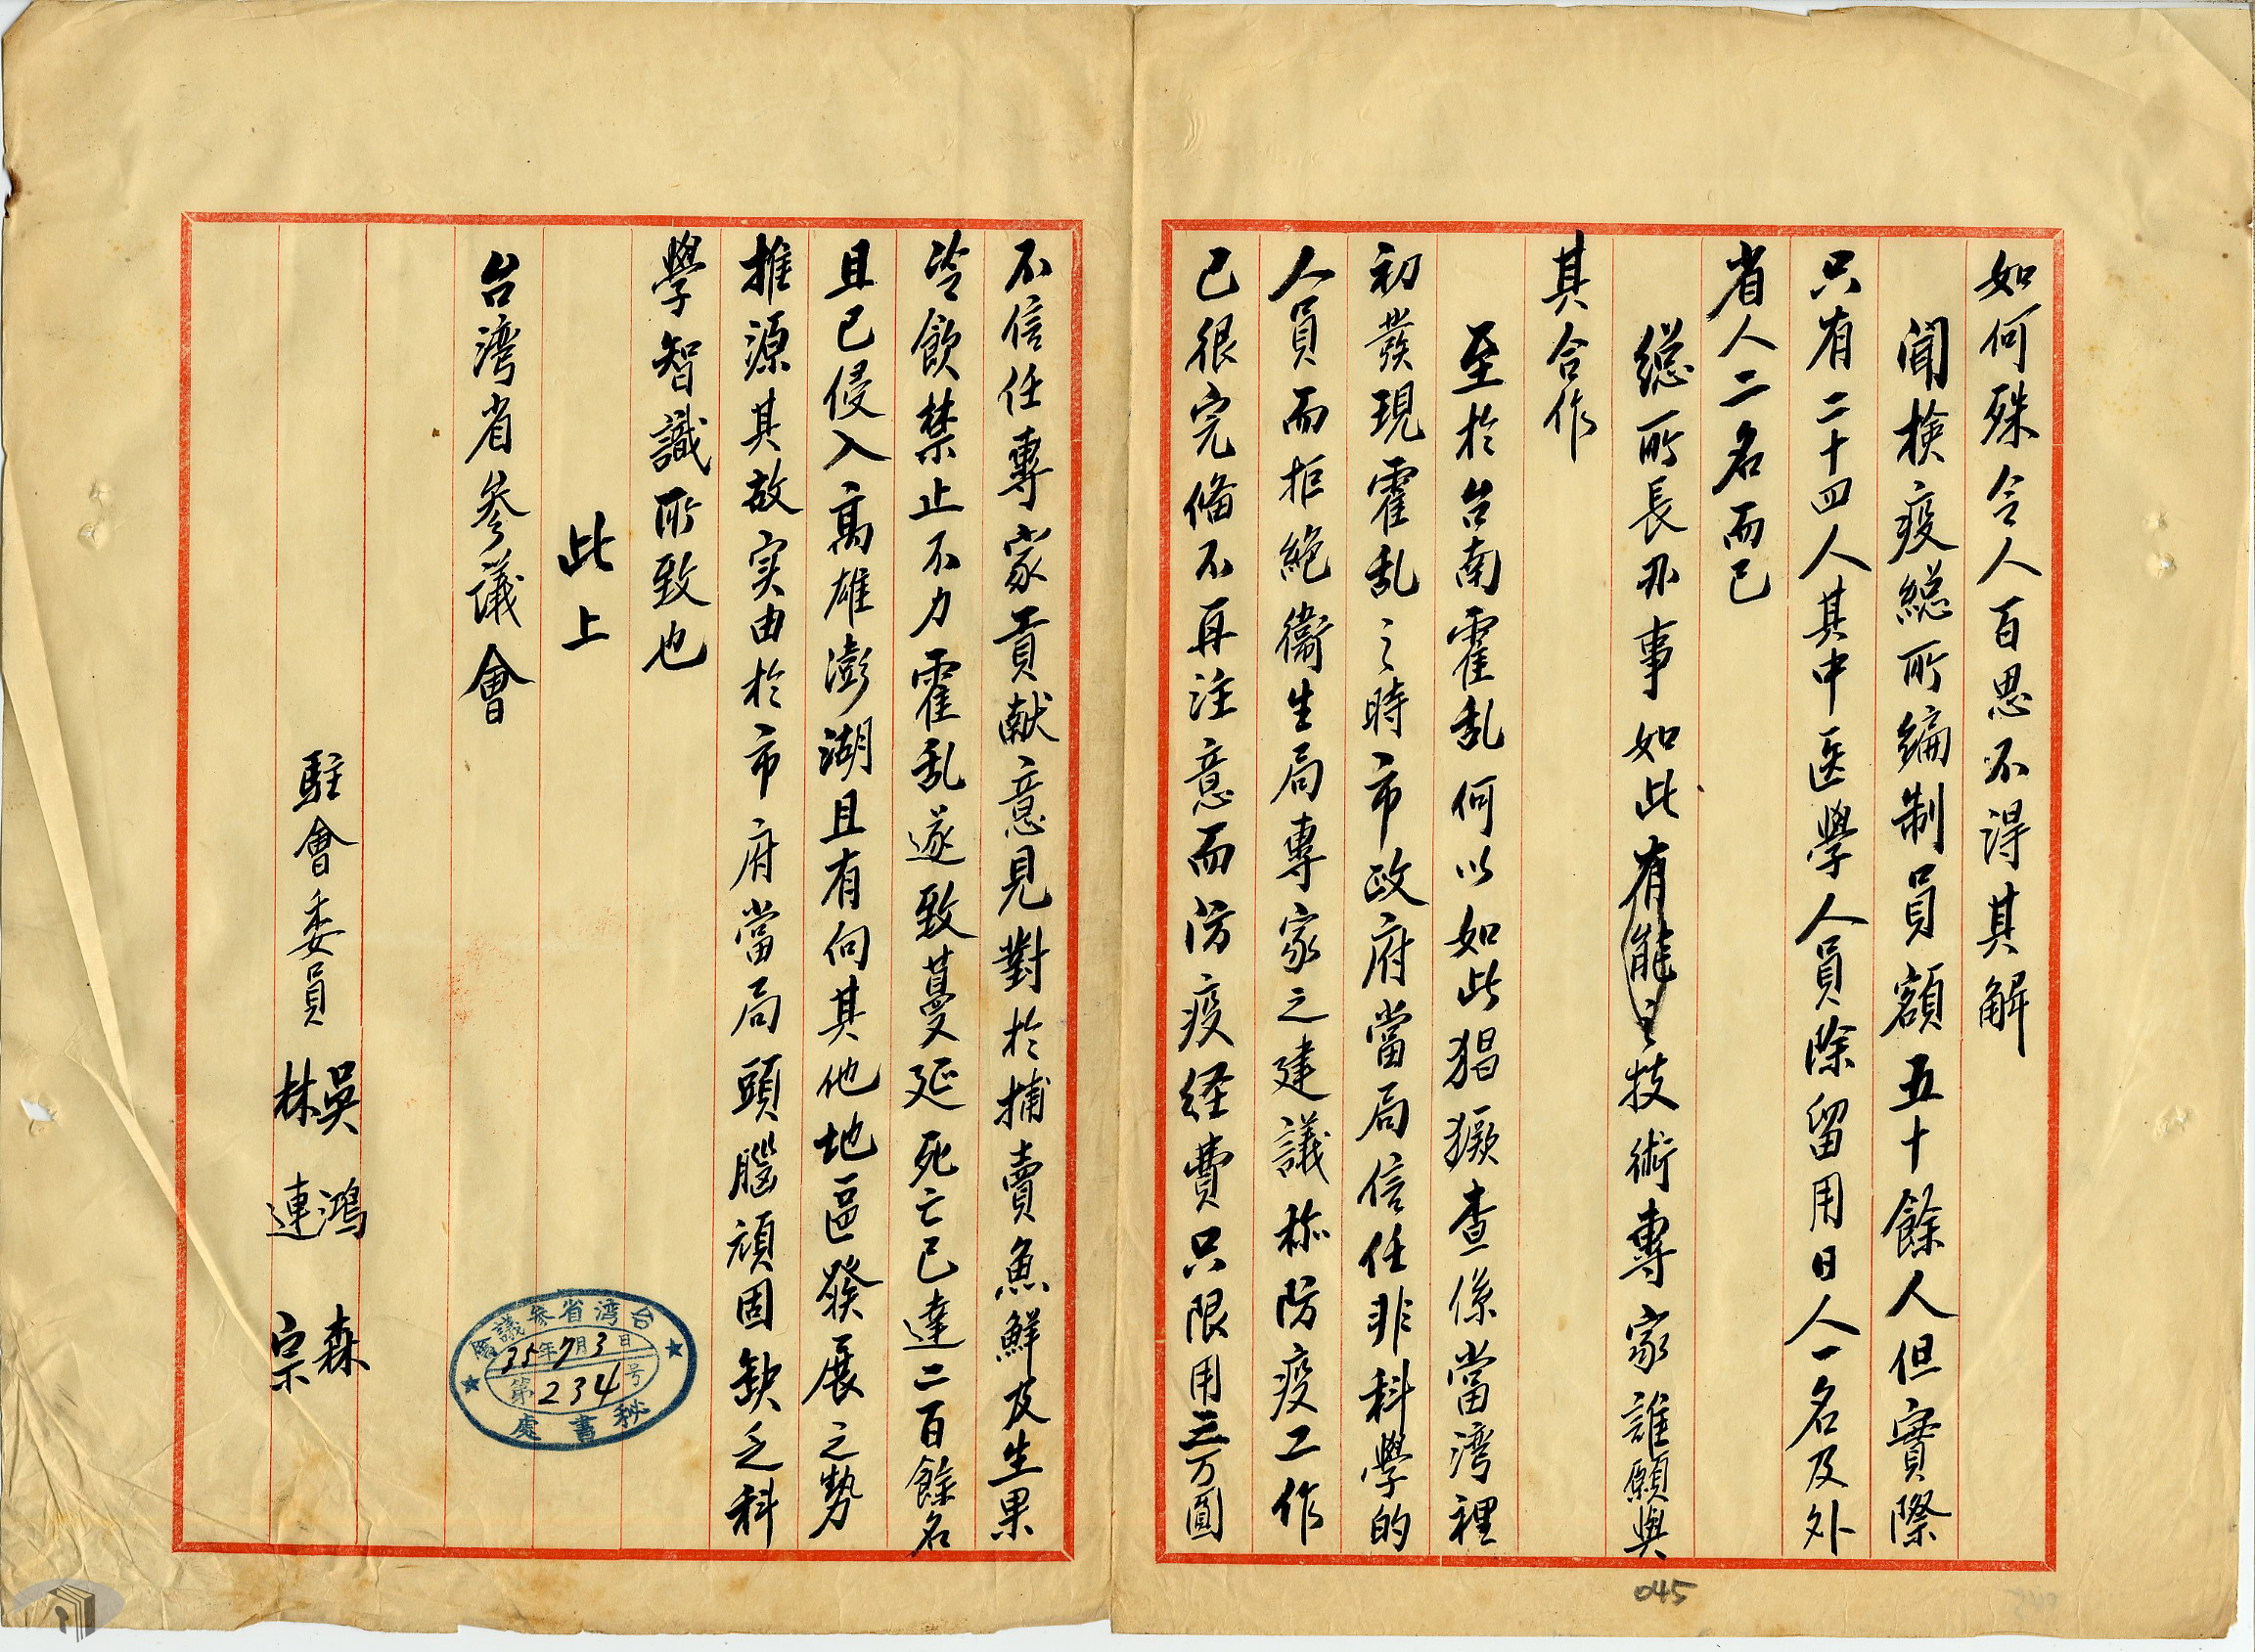 如何殊令人百思不得其解
聞檢疫総所編制員額五十餘人但實際
只有二十四人其中医學人員除留用日人一名及外
省人二名而已
総所長办事如此有能之技術專家誰願與
其合作
至於台南霍乱何以如此猖獗查係當湾裡
初發現霍乱之時市政府當局信任非科學的
人員而拒絶衞生局專家之建議称防疫工作
已很完備不再注意而防疫経費只限用三万圓
不信任專家貢献意見對於捕賣魚鮮及生果
冷飲禁止不力霍乱遂致蔓延死亡已達二百餘名
且已侵入高雄澎湖且有向其他地區發展之勢
推源其故实由於市府當局頭腦頑固缺乏科
學智識所致也
此上
台湾省參議會
駐會委員
吳鴻森
林連宗
台湾省參議會
35年7月3日
第234号
秘書處
045